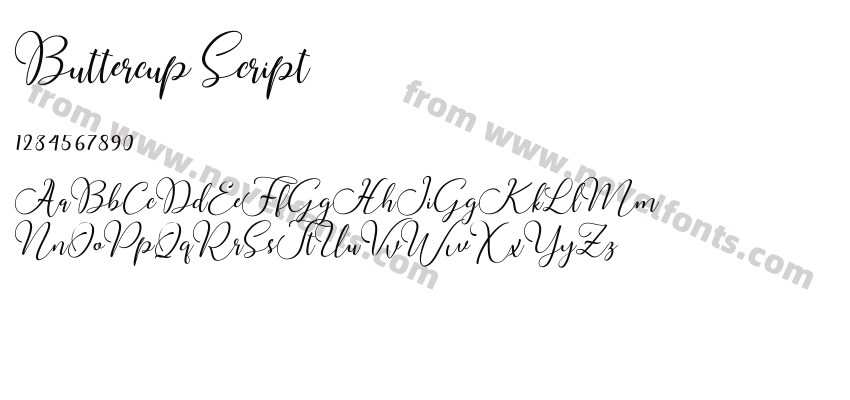 Buttercup Script
1234567890
AaBbCcDdEeFfGgHhIiGgKkLlMm
NnOoPpQqRrSsTtUuVvWwXxYyZz
from www.novelfonts.com
from www.novelfonts.com